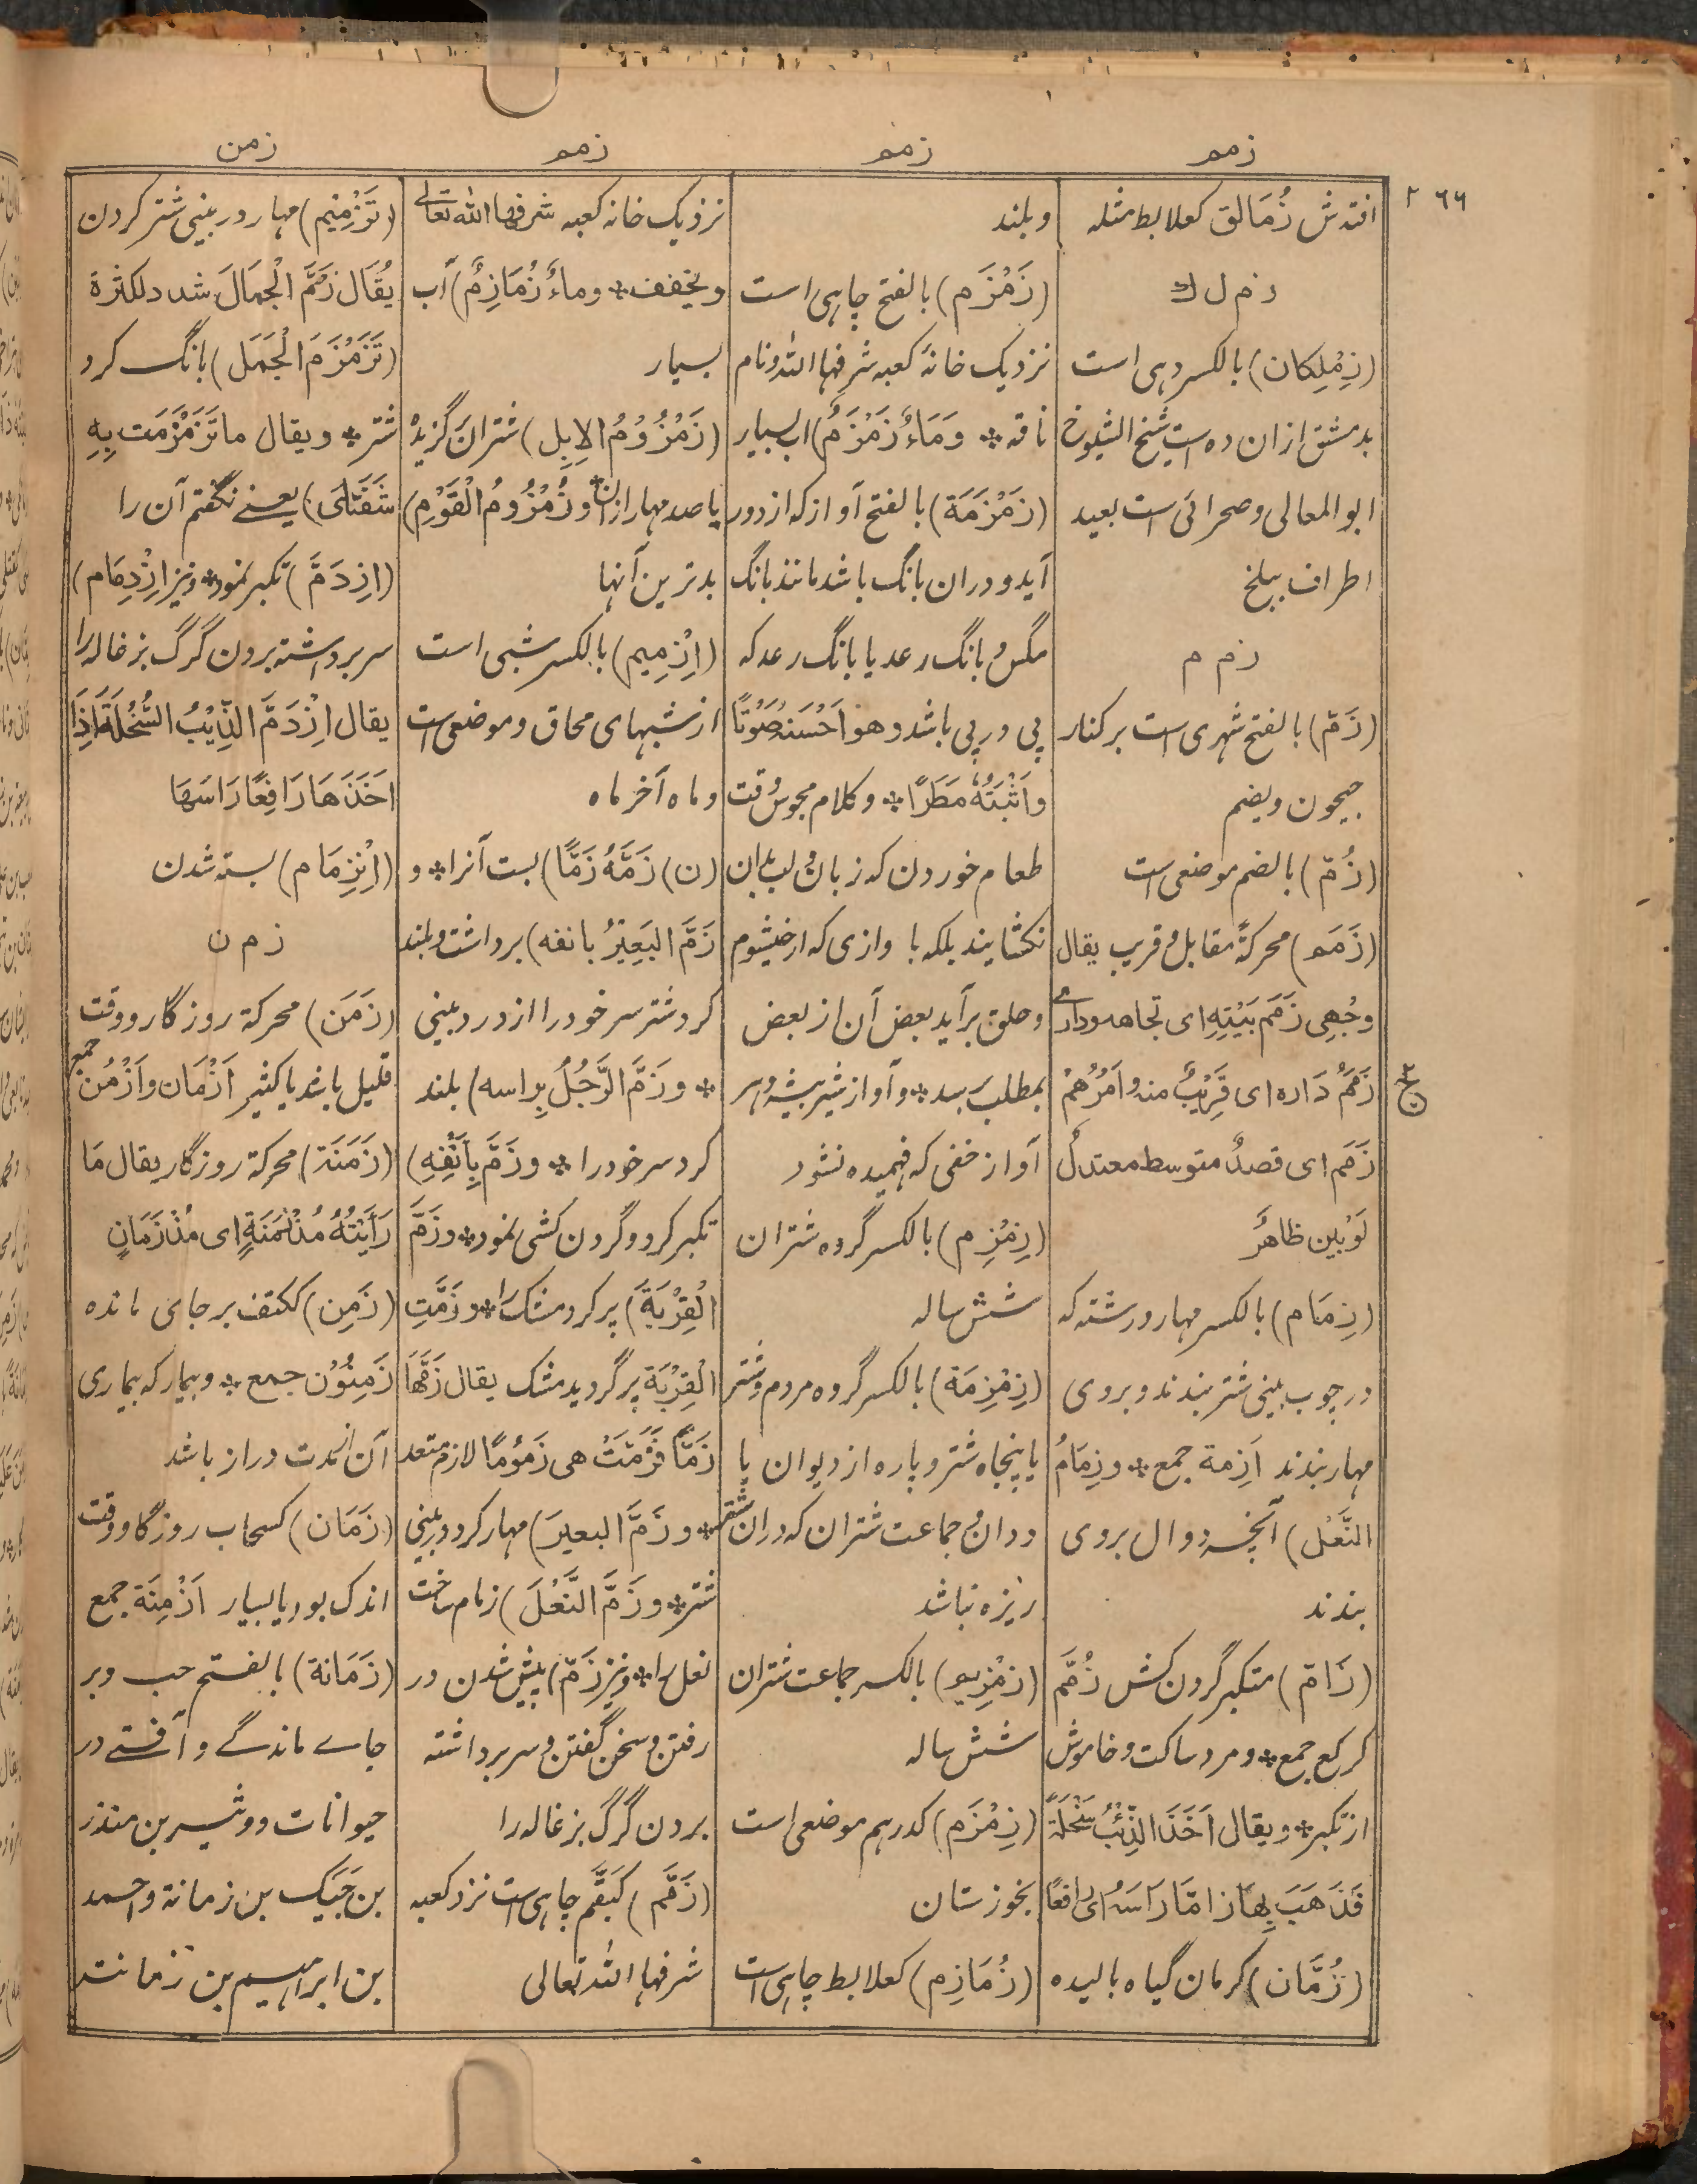 زمم
زمم
زمم
زمن
۲۶۶
افتدش زُمَالق كعلابط مثله
ز م ل ك
(زِمْلِكان) بالكسر دهی است
بدمشق ازان ده است شيخ الشيوخ
ابو المعالی و صحرائی است بعيد
اطراف ببلخ
ز م م
(زَمّ) بالفتح شهری است بر كنار
جيحون و بضم
(زُمّ) بالضم موضعی است
(زَمَم) محركةً مقابل و قريب يقال
وجْهِی زَمَمَ بَيْتِهِ ای تجاهه و داری
زَمَمُ دَاره ای قَرِيْبٌ منه و اَمْرُهُمْ
زَمَم ای قصدٌ متوسط معتدلٌ
اَوْ بَين ظاهرٌ
(زِمَام) بالكسر مهار و رشته كه
در چوب بينی شتر بندند و بروی
مهار بندند اَزِمة جمع * و زِمَامُ
النَّعْل) آنچه دوال بروی
بندند
(زَامّ) متكبر گردن كش زُمَّم
كركع جمع * و مرد ساكت و خاموش
از تكبر * و يقال اَخَذَ الذِّئْبُ سَخْلَةً
فَذَهَبَ بِهَا زامّا رَاسَهُ ای رافعًا
(زُمَّان) كرمان گياه باليده
و بلند
(زَمْزَم) بالفتح چاهی است
نزديك خانهٔ كعبه شرفها الله و نام
ناقه * وَمَاءٌ زَمْزَمٌ) اب بسيار
(زَمْزَمَة) بالفتح آوازكه از دور
آيد و دران بانگ باشد مانند بانگ
مگس و بانگ رعد يا بانگ رعد كه
پی در پی باشد و هو اَحْسَنهُ صَوْتًا
و اَثْبَتُهُ مَطَرًا * و كلام مجوس وقت
طعام خوردن كه زبان و لب بدان
نكشايند بلكه با وازی كه از خيشوم
و حلق برآيد بعض آن از بعض
بمطلب رسد * و آواز شير بيشه و هر
آواز خفی كه فهميده نشود
(زِمْزِم) بالكسر گروه شتران
شش ساله
(زِمْزِمَة) بالكسر گروه مردم و شتر
يا پنجاه شتر و پاره از ديوان يا
ددان و جماعت شتران كه دران شتر
ريزه نباشد
(زمْزِيم) بالكسر جماعت شتران
شش ساله
(زِمْزَم) كدرهم موضعی است
بخوزستان
(زُمَازِم) كعلابط چاهی است
نزديك خانه كعبه شرفها الله تعالی
و يخفف * و ماءٌ زُمَازِمٌ) آب
بسيار
(زَمْزُوْمُ الاِبِل) شتران گزيده
يا صد مهار ازان * و زُمْزُومُ الْقَوْمِ)
بدترين آنها
(اِزْمِيم) بالكسر شبی است
از شبهای محاق و موضعی است
و ماه آخر ماه
(ن) زَمَّهُ زَمًّا) بست آنرا * و
زَمَّ البَعِيْرُ بانفه) برداشت و بلند
كرد شتر سر خود را از درد بينی
* و زَمَّ الرَّجُلُ بِراسه) بلند
كرد سر خود را * و زَمَّ بِاَنْفِهِ)
تكبر كرد و گردن كشی نمود * و زَمَّ
الْقِرْبَةَ) پر كرد مشك را * و زَمَّتِ
الْقِرْبَة پر گرديد مشك يقال زَمَّهَا
زَمًّا فَزَمَّتْ هی زَمُومًا لازم متعد
* و زَمَّ البعيرَ) مهار كرد در بينی
شتر * و زَمَّ النَّعْلَ) زمام ساخت
نعل را * و نيز زَمّ) پيش شدن در
رفتن و سخن گفتن و سر برداشته
بردن گرگ بزغاله را
(زَمَّم) كبَقَّم چاهی است نزد كعبه
شرفها الله تعالی
(تَزْمِيْم) مهار در بينی شتر كردن
يُقَال زَمَّمَ الْجِمَالَ شدد لكثرة
(تَزَمْزَمَ الْجَمَل) بانگ كرد
شتر * و يقال ما تَزَمْزَمَت بِهِ
شَفَتَای) يعنے نگفتم آن را
(اِزدَمَّ) تكبر نمود * و نيز اِزْدِمَام)
سر برداشته بردن گرگ بزغاله را
يقال اِزْدَمَّ الذِّئْبُ السَّخْلَةَ اِذَا
اَخَذَهَا رَافِعًا رَاسَهَا
(اِنْزِمَام) بسته شدن
ز م ن
(زَمَن) محركة روزگار و وقت
قليل باشد يا كثير اَزْمَان و اَزْمُن جمع
(زَمَنَة) محركة روزگار يقال مَا
رَاَيْتُهُ مُذْ زَمَنَةٍ ای مُذْ زَمَانٍ
(زَمِن) ككتف بر جای مانده
زَمِنُوْن جمع * و بيمار كه بيماری
آن از مدت دراز باشد
(زَمَان) كسحاب روزگار و وقت
اندك بود يا بسيار اَزْمِنَة جمع
(زَمَانة) بالفتح حب و بر
جاے ماندگے و آفتے در
حيوانات و وشيربن منذر
بن جَيَك بن زمانة و احمد
بن ابراهيم بن زمانة